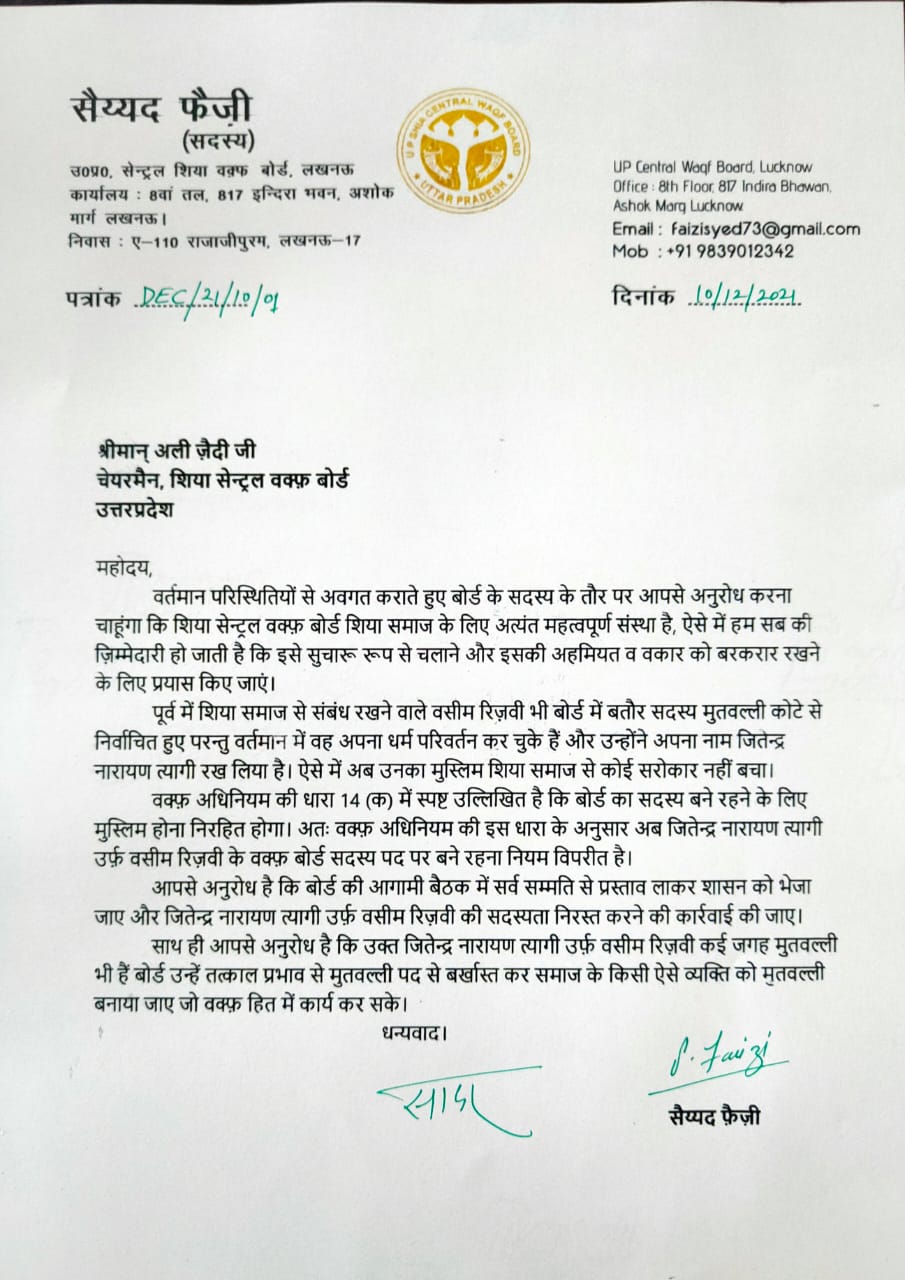 सैय्यद फैज़ी
(सदस्य)
उ०प्र०, सेन्ट्रल शिया वक़्फ बोर्ड, लखनऊ
कार्यालय : 8वां तल, 817 इन्दिरा भवन, अशोक
मार्ग लखनऊ।
निवास : ए–110 राजाजीपुरम, लखनऊ–17
U P SHIA CENTRAL WAQF BOARD
UTTAR PRADESH
UP Central Waqf Board, Lucknow
Office : 8th Floor, 817 Indira Bhawan,
Ashok Marg Lucknow
Email : faizisyed73@gmail.com
Mob : +91 9839012342
पत्रांक DEC/21/10/01
दिनांक 10/12/2021
श्रीमान् अली ज़ैदी जी
चेयरमैन, शिया सेन्ट्रल वक्फ़ बोर्ड
उत्तरप्रदेश
महोदय,
वर्तमान परिस्थितियों से अवगत कराते हुए बोर्ड के सदस्य के तौर पर आपसे अनुरोध करना
चाहूंगा कि शिया सेन्ट्रल वक्फ़ बोर्ड शिया समाज के लिए अत्यंत महत्वपूर्ण संस्था है, ऐसे में हम सब की
ज़िम्मेदारी हो जाती है कि इसे सुचारू रूप से चलाने और इसकी अहमियत व वकार को बरकरार रखने
के लिए प्रयास किए जाएं।
पूर्व में शिया समाज से संबंध रखने वाले वसीम रिज़वी भी बोर्ड में बतौर सदस्य मुतवल्ली कोटे से
निर्वाचित हुए परन्तु वर्तमान में वह अपना धर्म परिवर्तन कर चुके हैं और उन्होंने अपना नाम जितेन्द्र
नारायण त्यागी रख लिया है। ऐसे में अब उनका मुस्लिम शिया समाज से कोई सरोकार नहीं बचा।
वक्फ़ अधिनियम की धारा 14 (क) में स्पष्ट उल्लिखित है कि बोर्ड का सदस्य बने रहने के लिए
मुस्लिम होना निरहित होगा। अतः वक्फ़ अधिनियम की इस धारा के अनुसार अब जितेन्द्र नारायण त्यागी
उर्फ़ वसीम रिज़वी के वक्फ़ बोर्ड सदस्य पद पर बने रहना नियम विपरीत है।
आपसे अनुरोध है कि बोर्ड की आगामी बैठक में सर्व सम्मति से प्रस्ताव लाकर शासन को भेजा
जाए और जितेन्द्र नारायण त्यागी उर्फ़ वसीम रिज़वी की सदस्यता निरस्त करने की कार्रवाई की जाए।
साथ ही आपसे अनुरोध है कि उक्त जितेन्द्र नारायण त्यागी उर्फ़ वसीम रिज़वी कई जगह मुतवल्ली
भी हैं बोर्ड उन्हें तत्काल प्रभाव से मुतवल्ली पद से बर्खास्त कर समाज के किसी ऐसे व्यक्ति को मुतवल्ली
बनाया जाए जो वक्फ़ हित में कार्य कर सके।
धन्यवाद।
S. Faizi
सैय्यद फ़ैज़ी